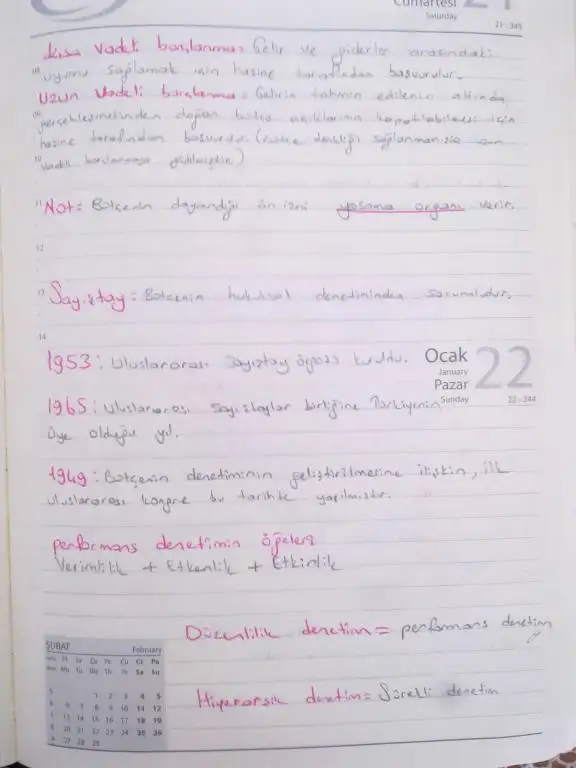 Cumartesi 21
Saturday
21-345
Kısa Vadeli borçlanma: Gelir ve giderler arasındaki
10 uyumu sağlamak için hazine tarafından başvurulur.
Uzun Vadeli borçlanma: Gelirin tahmin edilenin altında
gerçekleşmesinden doğan bütçe açıklarının kapatılabilmesi için
hazine tarafından başvurulur (bütçe denkliği sağlanmamışsa uzun
vadeli borçlanmaya gidilmiştir)
11 Not: Bütçenin dayandığı ön izni yasama organı verir.
12
13 Sayıştay: Bütçenin hukuksal denetiminden sorumludur.
14
1953: Uluslararası Sayıştay örgütü kuruldu.
Ocak 22
January
Pazar
Sunday
22-344
1965: Uluslararası Sayıştaylar birliğine Türkiyenin
üye olduğu yıl.
1949: Bütçenin denetiminin geliştirilmesine ilişkin, ilk
uluslararası kongre bu tarihte yapılmıştır.
performans denetimin öğeleri
Verimlilik + Etkenlik + Etkinlik
Düzenlilik denetim = performans denetim
Hiyerarşik denetim = Sürekli denetim
ŞUBAT February
Pt Sa Ça Pe Cu Ct Pa
Mo Tu We Th Fr Sa Su
5 1 2 3 4 5
6 6 7 8 9 10 11 12
7 13 14 15 16 17 18 19
8 20 21 22 23 24 25 26
9 27 28 29